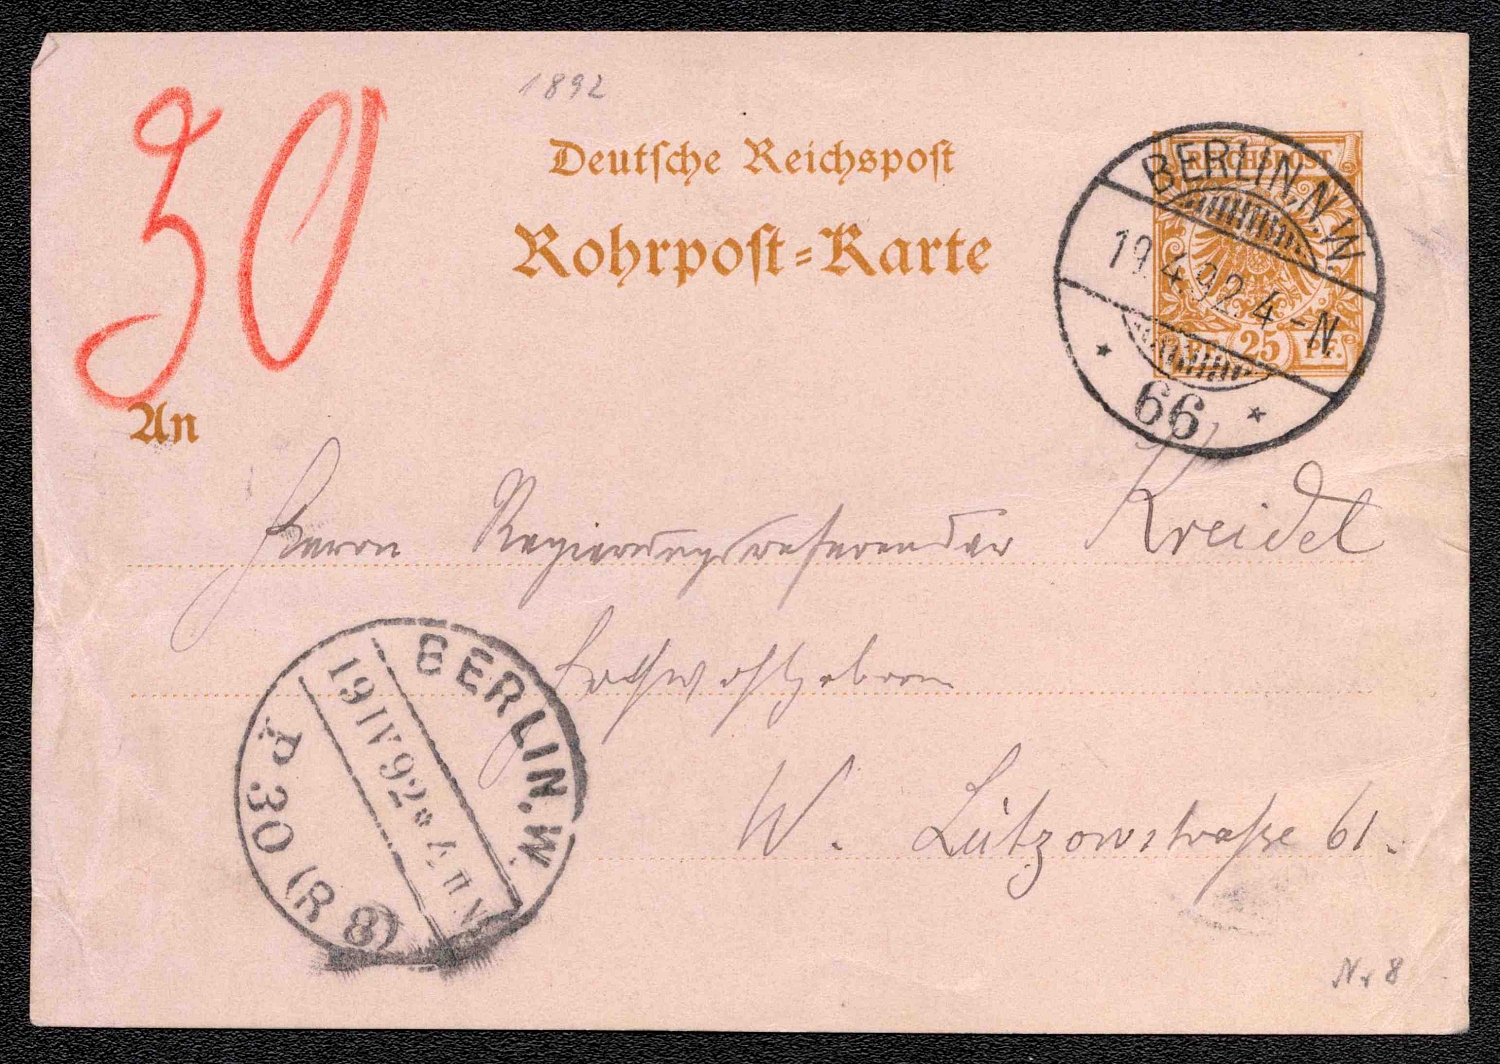 1892
30
Deutsche Reichspost
Rohrpost=Karte
REICHSPOST
25 PF.
BERLIN, N.W.
19.4.92. 4-N
* 66 *
An
Herrn Regierungsreferendar Kreidel
Hochwohlgeboren
W. Lützowstraße 61.
BERLIN. W.
19 IV 92 * 4 N
P 30 (R 8)
Nr 8